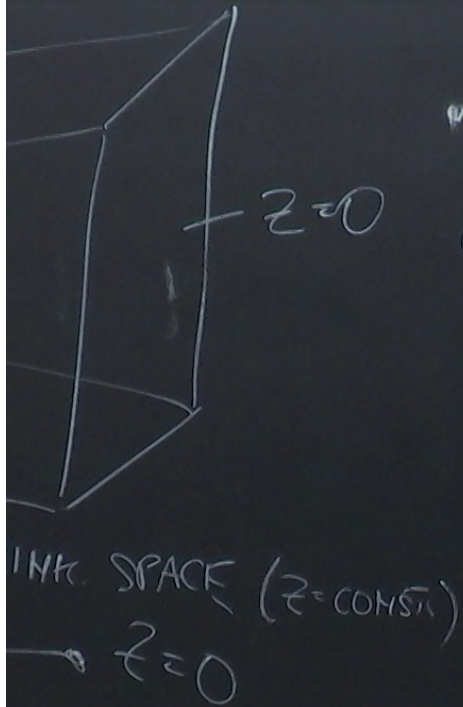 z=0
INK. SPACE (z=CONST.)
z=0